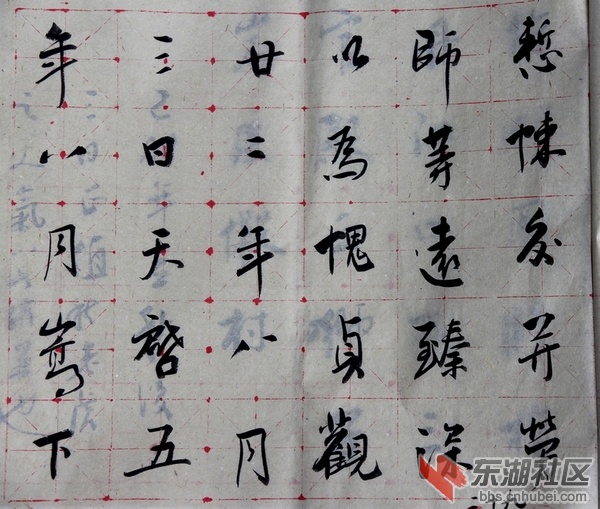 慙悚交并勞
師等遠臻深
以為愧貞觀
廿二年八月
三日天啓五
年八月嵩下
东湖社区
bbs.cnhubei.com